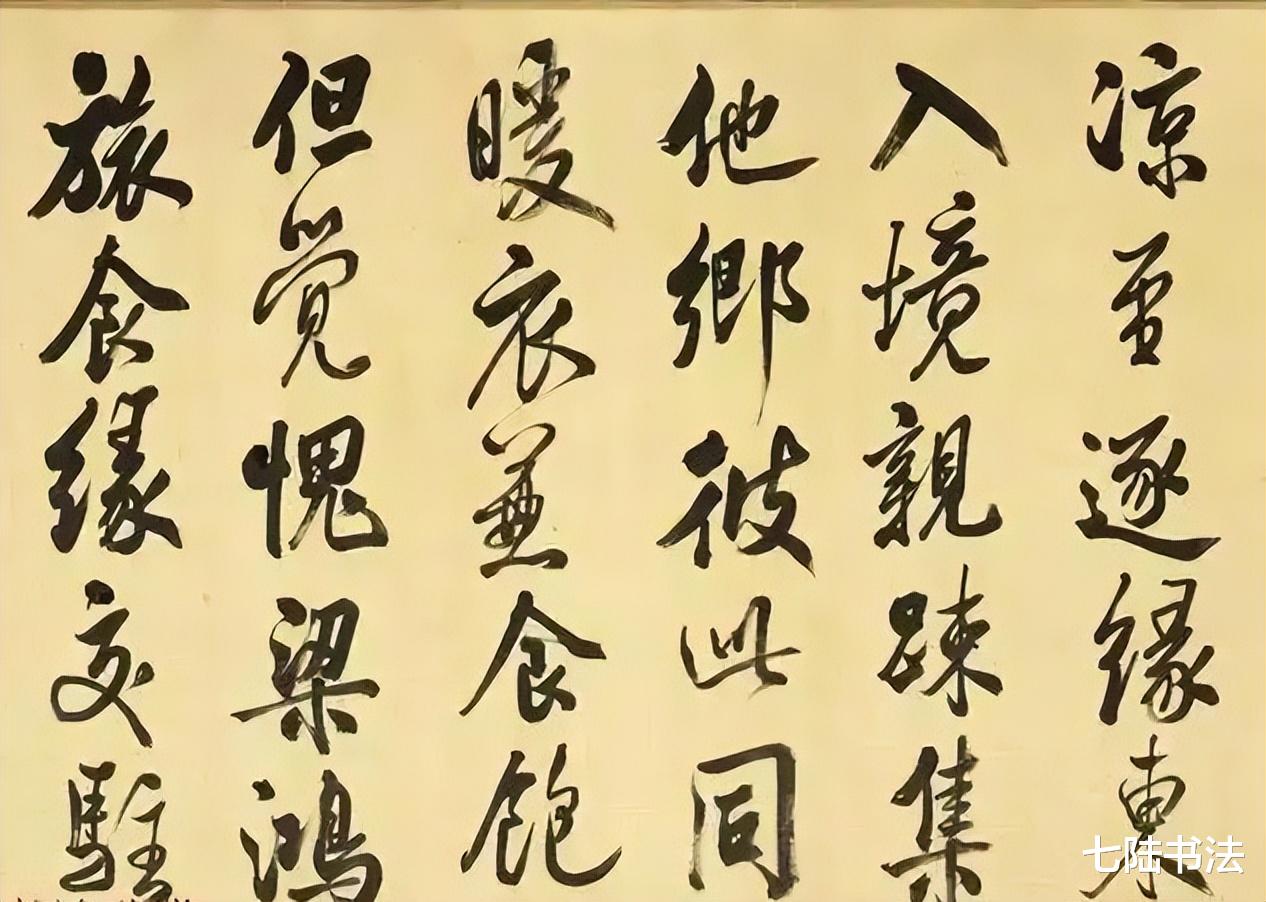 凉至逐缘東
入境親踈集
他鄉彼此同
暖衣兼食飽
但覺愧梁鴻
旅食緣交駐
七陆书法